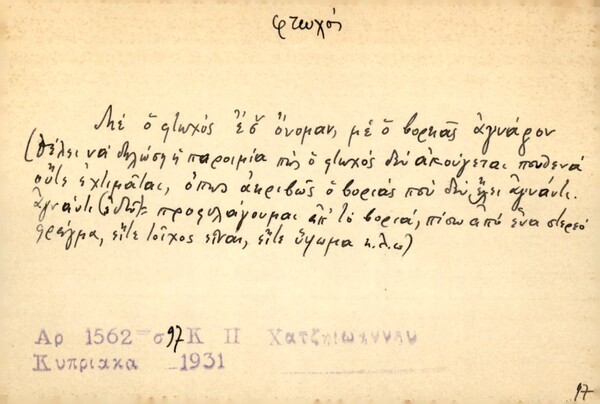 φτωχός
Μὲ ὁ φτωχὸς ἔσ̆ει ὄνομαν, μὲ ὁ βορκᾶς ἀγνάφον
(θέλει νὰ δηλώση ἡ παροιμία πὼς ὁ φτωχὸς δὲν ἀκούγεται πουθενά
οὔτε ἐχτιμᾶται, ὅπως ἀκριβῶς ὁ βοριὰς ποὺ δὲν ἔχει ἀγνάντι.
ἀγνάντι (ἐδῶ) = προφυλάγουμαι ἀπ' τὸ βοριά, πίσω ἀπὸ ἕνα στερεό
φράγμα, εἴτε τοῖχος εἶναι, εἴτε ὕψωμα κ.λ.π)
Αρ 1562 σ 97 Κ Π Χατζηιωαννου
Κυπριακα 1931
97